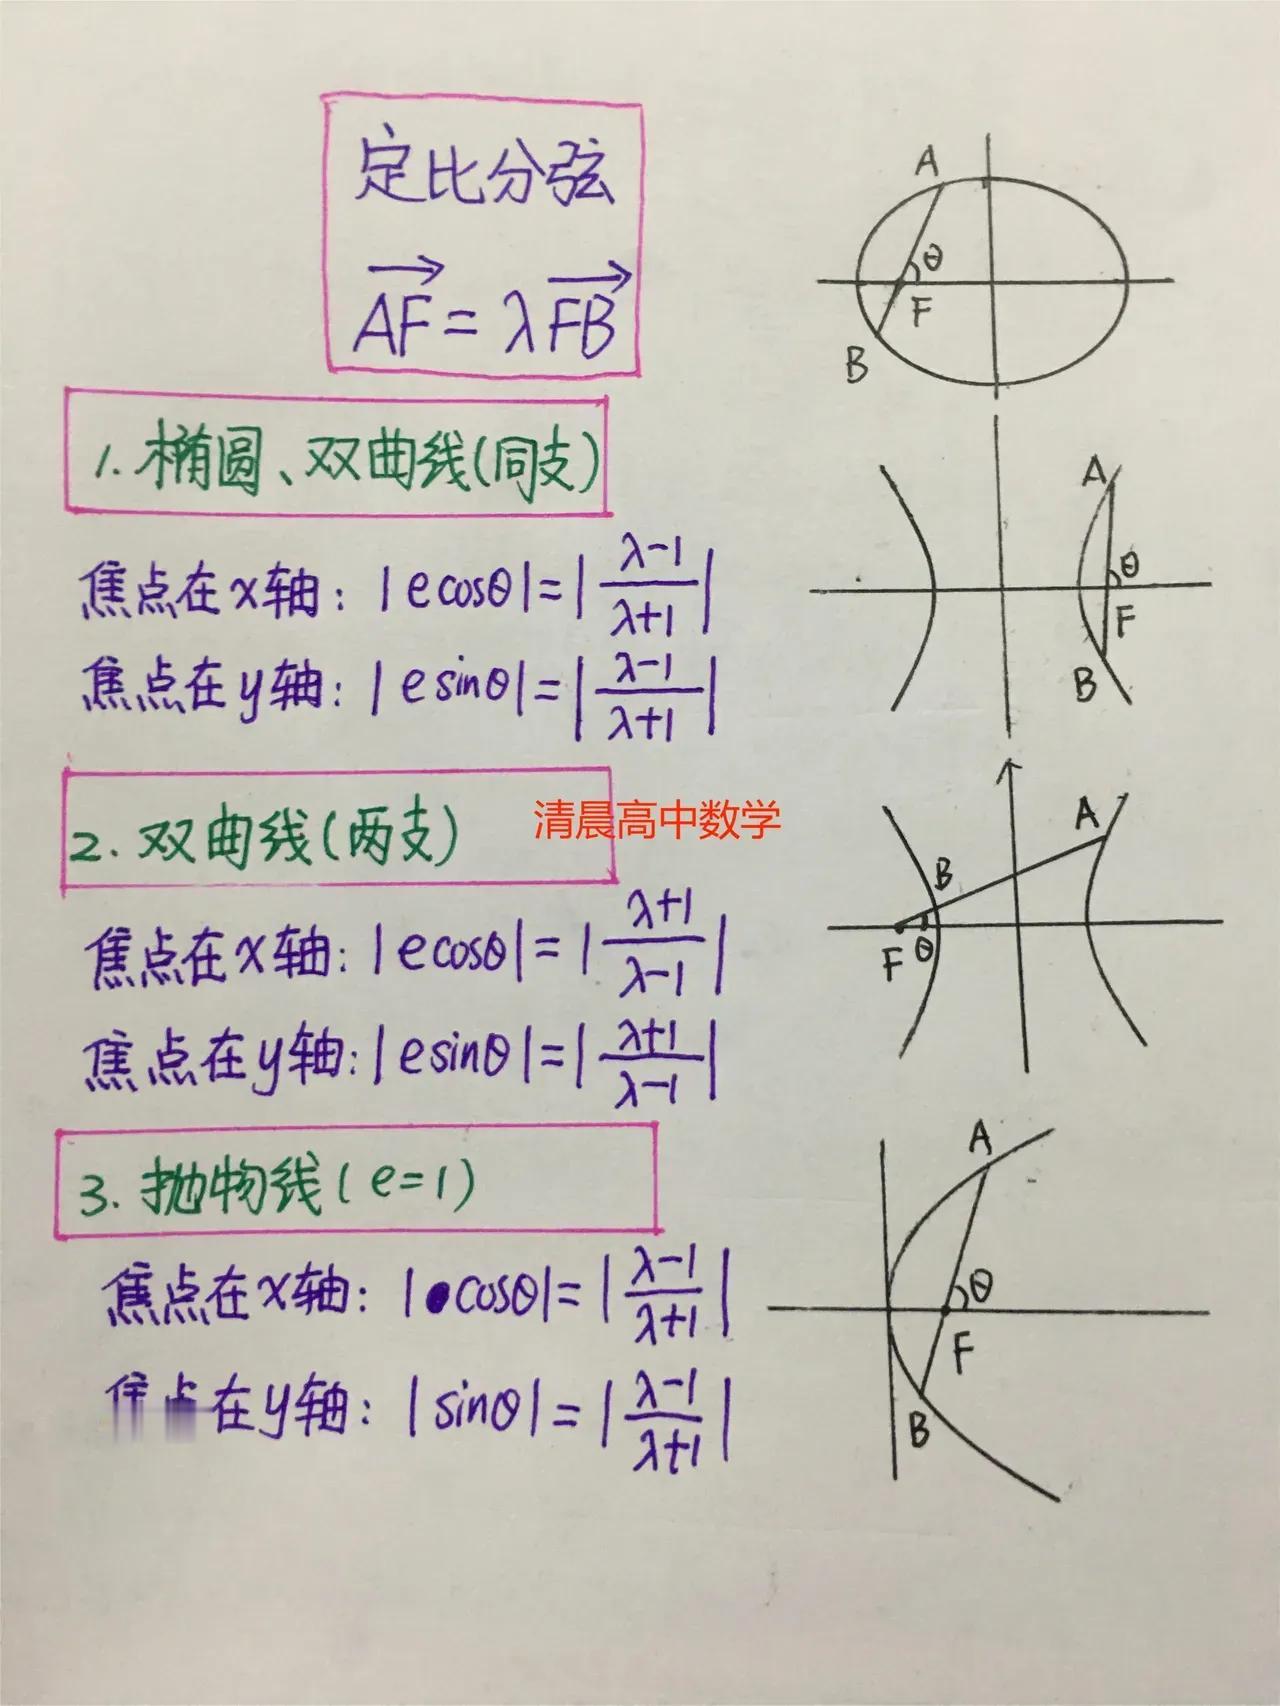 定比分弦
AF = λFB
1. 椭圆、双曲线(同支)
焦点在x轴: |ecosθ|=|(λ-1)/(λ+1)|
焦点在y轴: |esinθ|=|(λ-1)/(λ+1)|
2. 双曲线(两支)
清晨高中数学
焦点在x轴: |ecosθ|=|(λ+1)/(λ-1)|
焦点在y轴: |esinθ|=|(λ+1)/(λ-1)|
3. 抛物线(e=1)
焦点在x轴: |cosθ|=|(λ-1)/(λ+1)|
焦点在y轴: |sinθ|=|(λ-1)/(λ+1)|
A
θ
F
B
A
θ
F
B
A
B
F
θ
A
θ
F
B